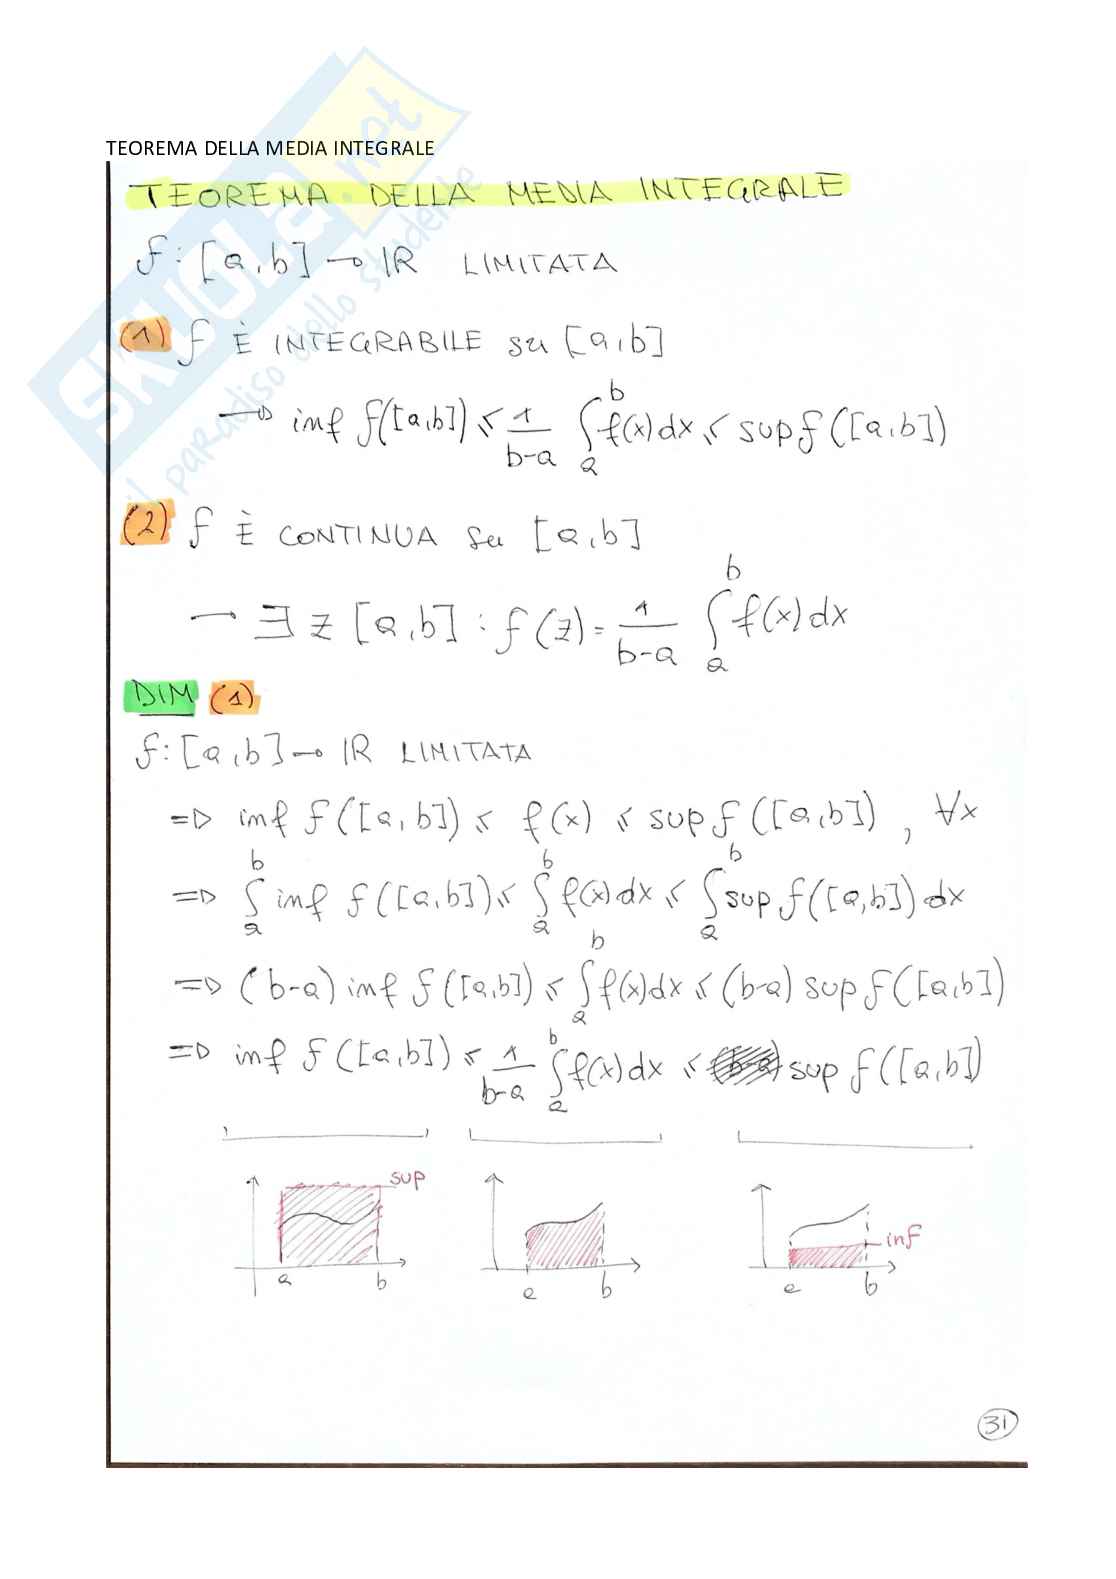 TEOREMA DELLA MEDIA INTEGRALE
SKUOLA.net
il paradiso dello studente
TEOREMA DELLA MEDIA INTEGRALE
f: [a,b] → IR LIMITATA
(1) f È INTEGRABILE su [a,b]
→ inf f([a,b]) ≤ 1/(b-a) ∫_a^b f(x) dx ≤ sup f([a,b])
(2) f È CONTINUA su [a,b]
→ ∃ z [a,b] : f(z) = 1/(b-a) ∫_a^b f(x) dx
DIM (1)
f: [a,b] → IR LIMITATA
=> inf f([a,b]) ≤ f(x) ≤ sup f([a,b]) , ∀x
=> ∫_a^b inf f([a,b]) ≤ ∫_a^b f(x) dx ≤ ∫_a^b sup f([a,b]) dx
=> (b-a) inf f([a,b]) ≤ ∫_a^b f(x) dx ≤ (b-a) sup f([a,b])
=> inf f([a,b]) ≤ 1/(b-a) ∫_a^b f(x) dx ≤ (b-a) sup f([a,b])
sup
a b
a b
inf
a b
31